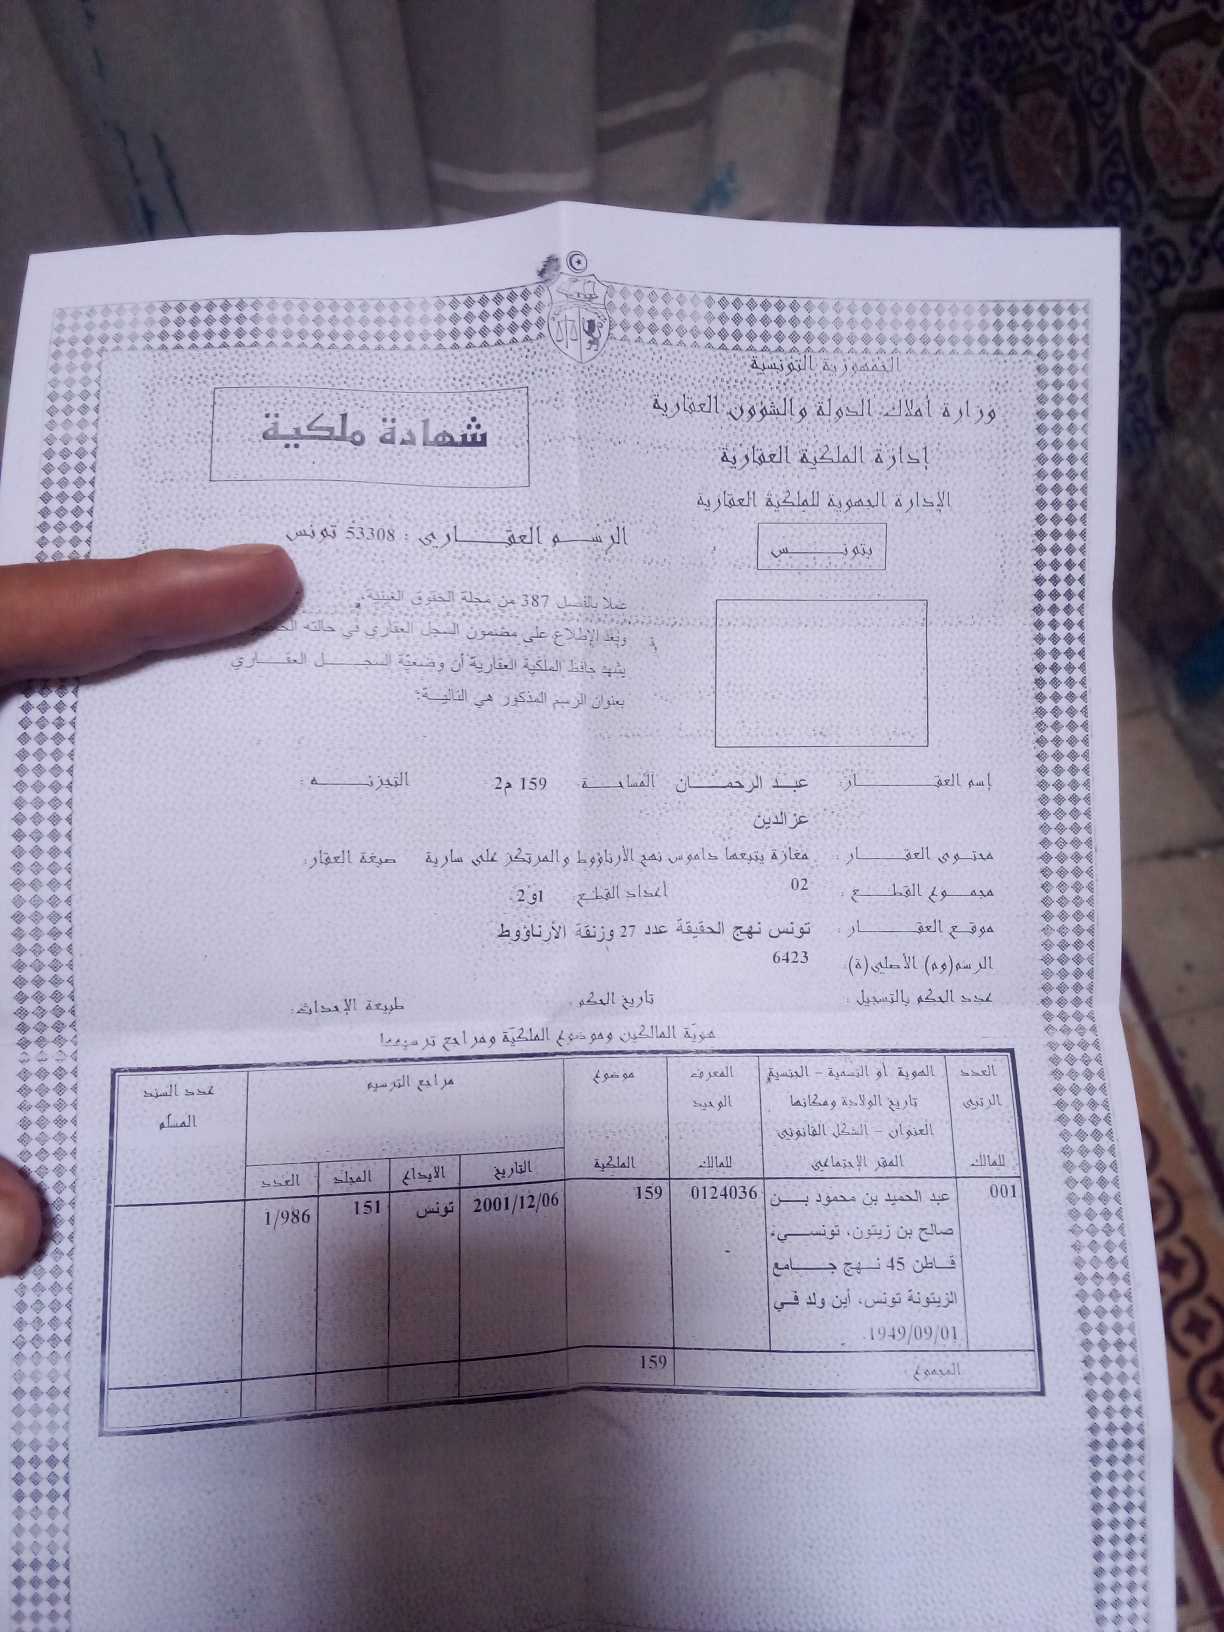 الجمهورية التونسية
وزارة أملاك الدولة والشؤون العقارية
إدارة الملكية العقارية
الإدارة الجهوية للملكية العقارية
بتونس
شهادة ملكية
الرسم العقاري : 53308 تونس
عملا بالفصل 387 من مجلة الحقوق العينية
وبعد الإطلاع على مضمون السجل العقاري في حالته
يشهد حافظ الملكية العقارية أن وضعية السجل العقاري
بعنوان الرسم المذكور هي التالية:
إسم العقار: عبد الرحمان المساحة: 159 م2 التجزئة :
عزالدين
محتوى العقار : مغازة يتبعها داموس نهج الأرناؤوط والمرتكز على سارية صبغة العقار:
مجموع القطع : 02 أعداد القطع: 1و2
موقع العقار : تونس نهج الحقيقة عدد 27 وزنقة الأرناؤوط
الرسم(وم) الأصلي(ة): 6423
عدد الحكم بالتسجيل : تاريخ الحكم : طبيعة الإحداث:
هوية المالكين وموضوع الملكية ومراجع ترسيمها
العدد الرتبي للمالك
الهوية أو التسمية - الجنسية
تاريخ الولادة ومكانها
العنوان - الشكل القانوني
المقر الإجتماعي
المعرف الوحيد للمالك
موضوع الملكية
مراجع الترسيم
التاريخ الايداع المجلد العدد
عدد السند المسلم
001 عبد الحميد بن محمود بن 0124036 159 2001/12/06 تونس 151 1/986
صالح بن زيتون، تونسي،
قاطن 45 نهج جامع
الزيتونة تونس، أين ولد في
1949/09/01.
المجموع 159